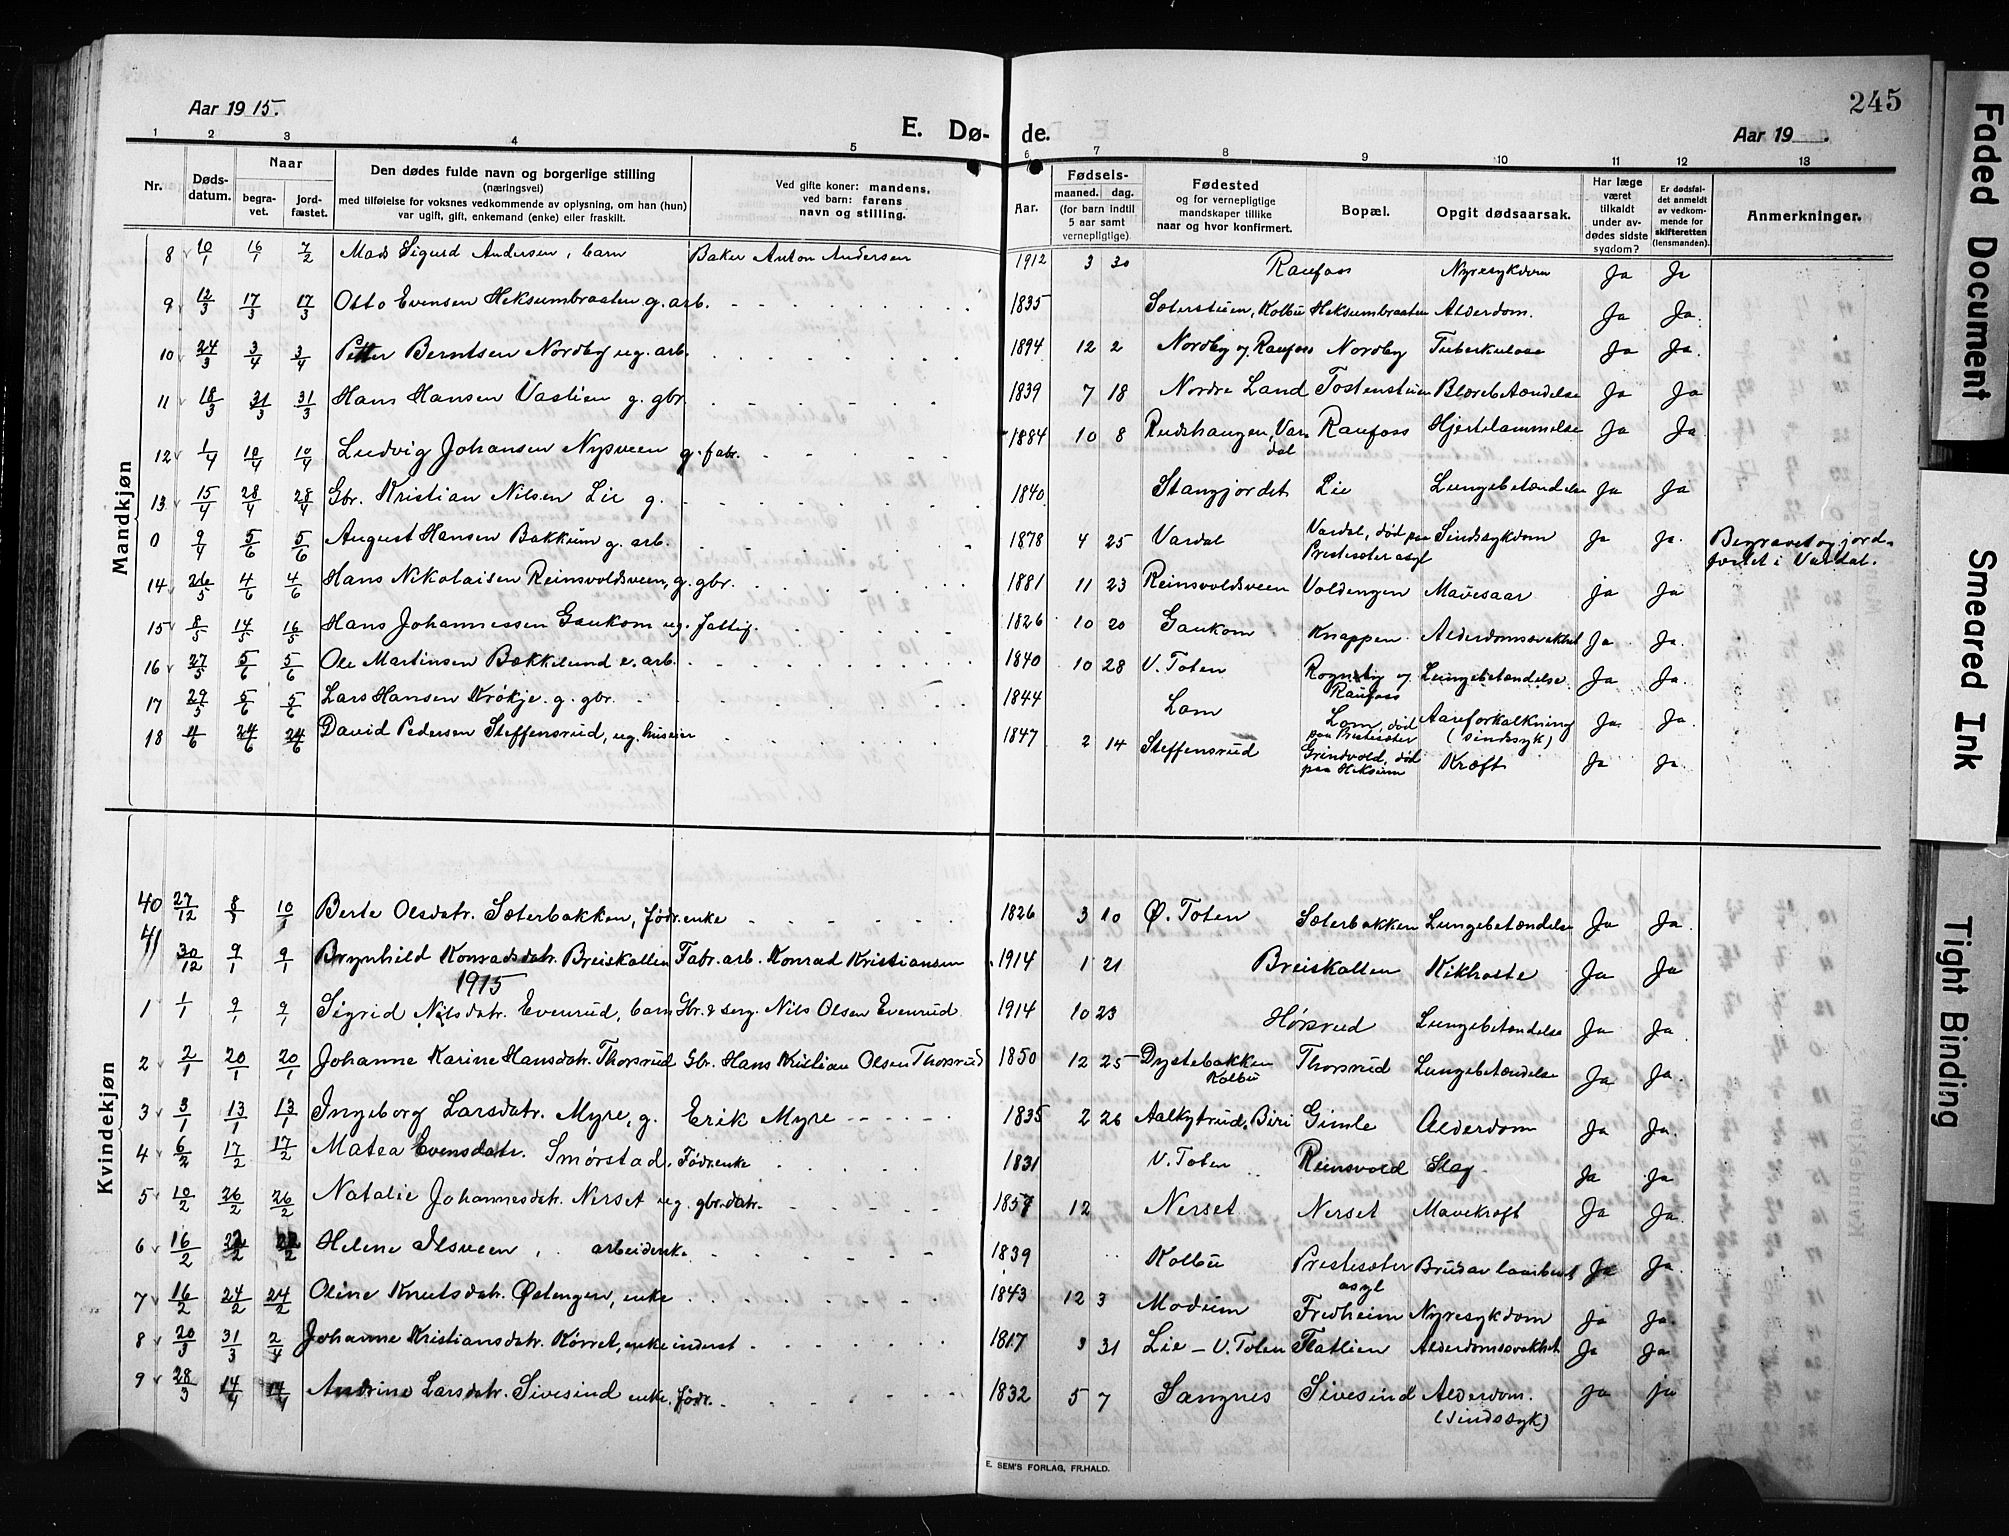 245
Aar 1915.
E. Dø- de.
Aar 19 .
1 2 3 4 5 6 7 8 9 10 11 12 13
Nr. Døds-datum. Naar begra-vet. jord-fæstet. Den dødes fulde navn og borgerlige stilling (næringsvei) med tilføielse for voksnes vedkommende av oplysning, om han (hun) var ugift, gift, enkemand (enke) eller fraskilt. Ved gifte koner: mandens, ved barn: farens navn og stilling. Aar. Fødsels- maaned. dag. (for barn indtil 5 aar samt vernepligtige). Fødested og for vernepligtige mandskaper tillike naar og hvor konfirmert. Bopæl. Opgit dødsaarsak. Har læge været tilkaldt under av-dødes sidste sygdom? Er dødsfal-det anmeldt av vedkom-mende for skifteretten (lensmanden). Anmerkninger.
Mandkjøn
8 10/1 16/1 7/2 Mads Sigurd Andersen, barn Baker Anton Andersen 1912 3 30 Raufoss Nyresykdom Ja Ja
9 12/3 17/3 17/3 Otto Evensen Heksumbraaten g. arb. 1835 Sæterstuen, Kolbu Heksumbraaten Alderdom. Ja Ja.
10 24/3 3/4 3/4 Petter Berntsen Nordby ug. arb. 1894 12 2 Nordby og Raufoss Nordby Tuberkulose Ja Ja.
11 18/3 31/3 31/3 Hans Hansen Vastien g. gbr. 1839 7 18 Nordre Land Tostenstuen Blærebetændelse Ja Ja
12 1/4 10/4 10/4 Ludvig Johansen Nysveen g. fabr. 1884 10 8 Rudshaugen, Var-dal Raufoss Hjertelammelse Ja Ja
13 15/4 28/4 28/4 Gbr. Kristian Nilsen Lie g. 1840 Stangjordet Lie Lungebetændelse Ja Ja
0 9/4 5/6 5/6 August Hansen Bakkum g. arb. 1878 4 25 Vardal Vardal, død paa Prestesæter asyl Sindssykdom Ja Ja. Begravet og jord-fæstet i Vardal.
14 26/5 4/6 4/6 Hans Nikolaisen Reinsvoldsveen, g. gbr. 1881 11 23 Reinsvoldsveen Voldengen Mavesaar ja Ja
15 8/5 14/5 16/5 Hans Johannessen Gaukom ug. fattig. 1826 10 20 Gaukom Knappen Alderdomssvakhet Ja Ja.
16 27/5 5/6 5/6 Ole Martinsen Bækkelund e. arb. 1840 10 28 V. Toten Rognstig og Raufoss Lungebetændelse. Ja Ja.
17 29/5 5/6 5/6 Lars Hansen Krøkje g. gbr. 1844 Lom Lom, død paa Prestesæter Aareforkalkning (sindssyk) Ja Ja.
18 4/6 24/6 24/6 David Pedersen Steffensrud, ug. huseier 1847 2 14 Steffensrud Grindvold, død paa Heksum Kræft Ja Ja.
Kvindekjøn
40 27/12 8/1 10/1 Berte Olsdatr. Sæterbakken, fødr. enke 1826 3 10 Ø. Toten Sæterbakken Lungebetændelse Ja Ja.
41 30/12 9/1 9/1 Brynhild Konradsdatr. Breiskallen Fabr. arb. Konrad Kristiansen 1914 1 21 Breiskallen Kikhoste Ja Ja
1915
1 1/1 9/1 9/1 Sigrid Nilsdatr. Evenrud, barn Gbr. & serg. Nils Olsen Evenrud 1914 10 23 Hørsrud Lungebetændelse Ja Ja.
2 2/1 20/1 20/1 Johanne Karine Hansdatr. Thorsrud Gbr. Hans Kristian Olsen Thorsrud 1850 12 25 Dystebakken Kolbu Thorsrud Lungebetændelse Ja Ja.
3 3/1 13/1 13/1 Ingeborg Larsdatr. Myre, g. Erik Myre 1835 2 26 Aalkytrud, Biri Gimle Alderdom Ja Ja.
4 6/2 17/2 17/2 Matea Evensdatr. Smørstad, Fødr. enke 1831 V. Toten Reinsvold Slag Ja Ja
5 10/2 26/2 26/2 Natalie Johannesdatr. Nerset ug. gbr. datr. 1859 12 Nerset Nerset Mavekræft Ja Ja.
6 16/2 22/2 22/2 Helene Ilsveen, arbeiderenke. 1839 Kolbu Prestesæter asyl Brudav laarbent Ja Ja.
7 16/2 24/2 24/2 Oline Knutsdatr. Østengen, enke 1843 12 3 Modum Fredheim Nyresykdom Ja Ja.
8 20/3 31/3 2/4 Johanne Kristiansdatr. Kørret, enke inderst 1817 3 31 Lie - V. Toten Flatlien Alderdomssvakhet Ja Ja.
9 28/3 14/4 14/4 Andrine Larsdatr. Sivesind enke, fødr. 1832 5 7 Sangnes Sivesind Alderdom. (sindssyk) Ja ja
E. SEM'S FORLAG, FR.HALD.
Faded Document
Smeared Ink
Tight Binding